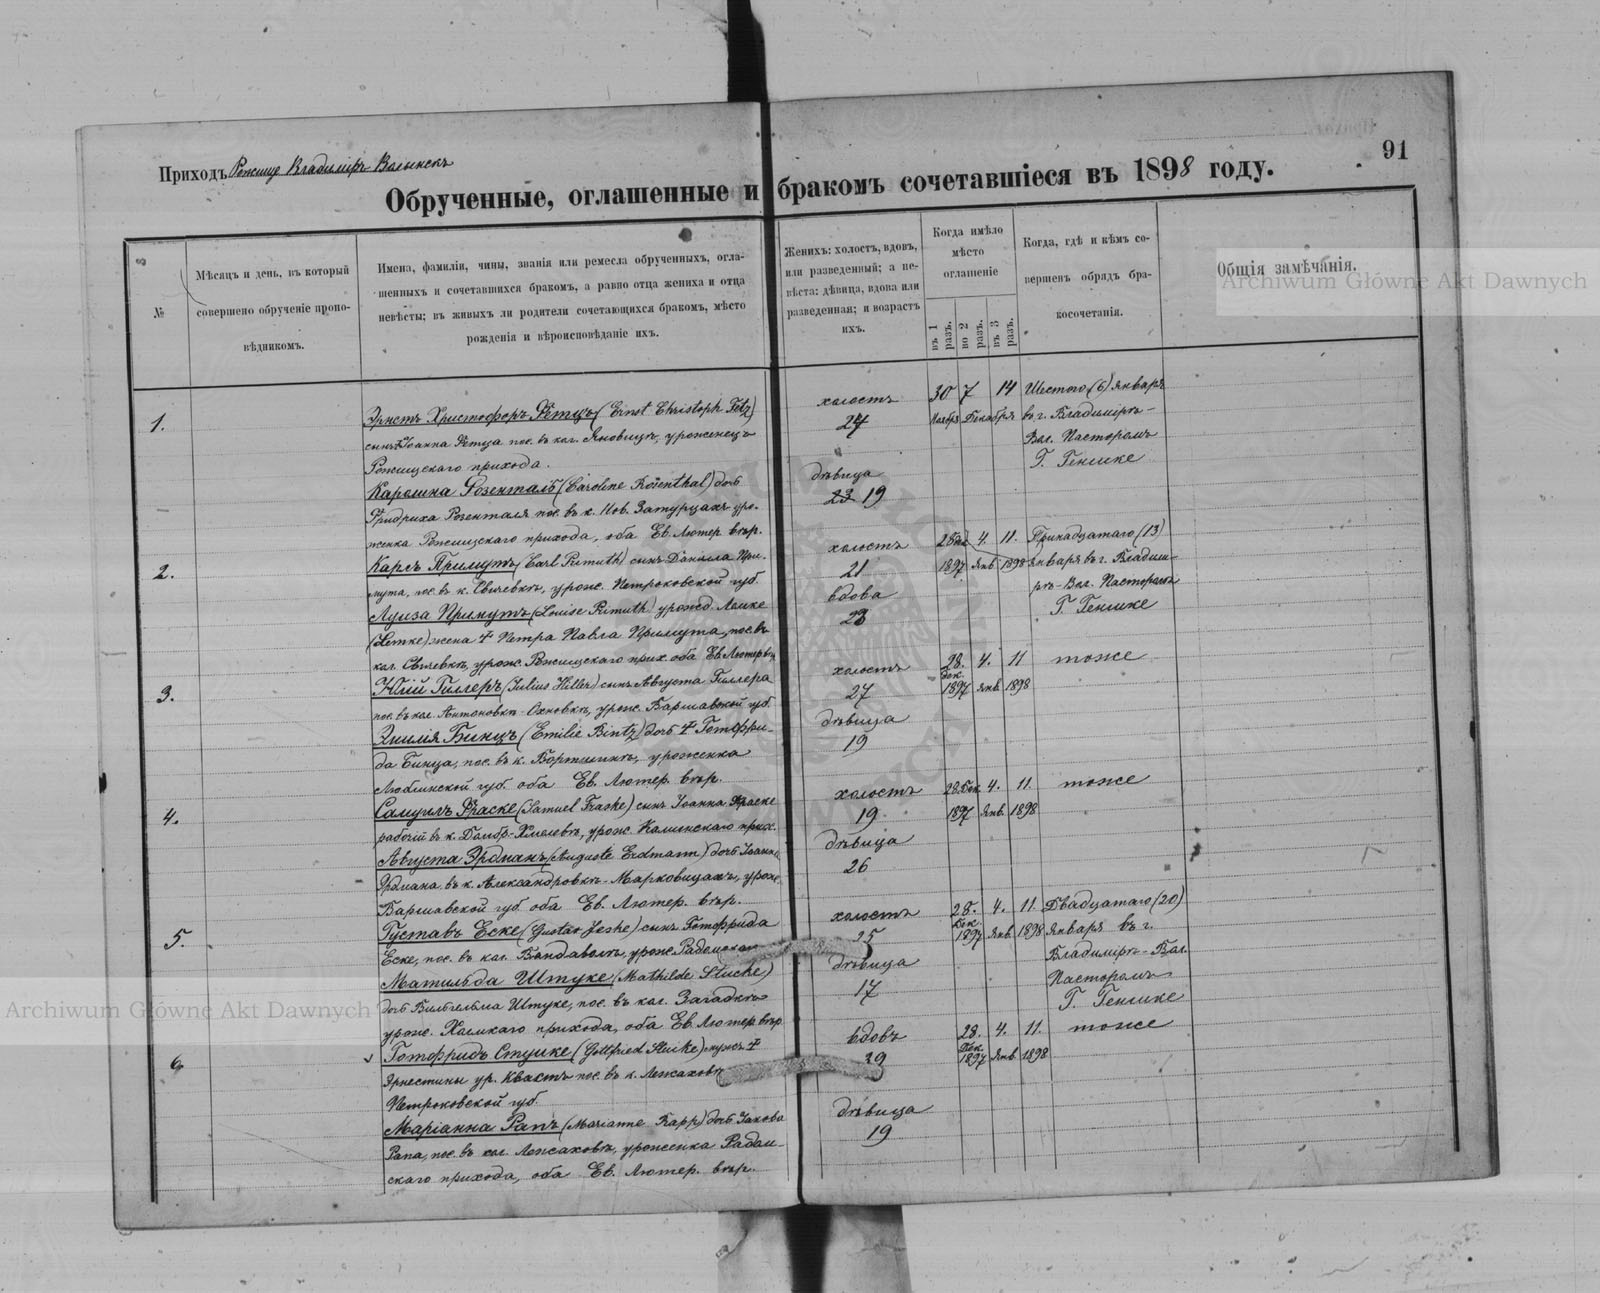 91
Приходъ Рожище Владиміръ Волынскъ
Обрученные, оглашенные и бракомъ сочетавшіеся въ 1898 году.
№
Мѣсяцъ и день, въ который
совершено обрученіе пропо-
вѣдникомъ.
Имена, фамиліи, чины, званія или ремесла обрученныхъ, огла-
шенныхъ и сочетавшихся бракомъ, а равно отца жениха и отца
невѣсты; въ живыхъ ли родители сочетающихся бракомъ, мѣсто
рожденія и вѣроисповѣданіе ихъ.
Женихъ: холостъ, вдовъ,
или разведенный; а не-
вѣста: дѣвица, вдова или
разведенная; и возрастъ
ихъ.
Когда имѣло
мѣсто
оглашеніе
въ 1 разъ.
во 2 разъ.
въ 3 разъ.
Когда, гдѣ и кѣмъ со-
вершенъ обрядъ бра-
косочетанія.
Общія замѣчанія.
Archiwum Główne Akt Dawnych
1.
Эрнстъ Христофоръ Фетцъ (Ernst Christoph Fetz)
сынъ Іоанна Фетца пос. въ кол. Яновицѣ, уроженецъ
Рожищскаго прихода.
Каролина Розенталь (Caroline Rosenthal) дочь
Фридриха Розенталя пос. въ к. Нов. Затурцахъ уро-
женка Рожищскаго прихода, оба Ев. Лютер. вѣр.
холостъ
24
дѣвица
23 19
30 7 14
Ноября Декабря
Шестого (6) января
въ г. Владиміръ-
Вол. Пасторомъ
Г. Генике
2.
Карлъ Примутъ (Carl Primuth) сынъ Даніила При-
мута, пос. въ к. Свичевкѣ, урож. Петроковской губ.
Луиза Примутъ (Louise Primuth) урожд. Лемке
(Lemke) жена † Петра Павла Примута, пос. въ
кол. Свичевкѣ, урож. Рожищскаго прих. оба Ев. Лютер. вѣр.
холостъ
21
вдова
23
28 Дек. 4. 11.
1897 Янв. 1898
Тринадцатаго (13)
января въ г. Владим-
іръ-Вол. Пасторомъ
Г. Генике
3.
Юлій Гиллеръ (Julius Hiller) сынъ Августа Гиллера
пос. въ кол. Антоновкѣ-Охновкѣ, урож. Варшавской губ.
Эмилія Бинцъ (Emilie Bintz) дочь † Готфри-
да Бинца, пос. въ к. уроженка
Люблинской губ. оба Ев. Лютер. вѣр.
холостъ
27
дѣвица
19
28. 4. 11
Дек.
1897 Янв. 1898
тоже
4.
Самуилъ Фраске (Samuel Fraske) сынъ Іоанна Фраске
рабочій въ к. Домбр.-Хмелевѣ, урож. прих.
Августа Эрдманъ (Auguste Erdmann) дочь Іоанна
Эрдмана въ к. Александровкѣ-Марковицахъ, урож.
Варшавской губ. оба Ев. Лютер. вѣр.
холостъ
19
дѣвица
26
28 Дек. 4. 11.
1897 Янв. 1898
тоже
5.
Густавъ Еске (Gustav Jeske) сынъ Готфрида
Еске, пос. въ кол. урож.
Матильда Штуке (Mathilde Stucke)
дочь Вильгельма Штуке, пос. въ кол. Загадкѣ
урож. прихода, оба Ев. Лютер. вѣр.
холостъ
25
дѣвица
17
28. 4. 11
Дек.
1897 Янв. 1898
Двадцатаго (20)
января въ г.
Владиміръ-Вол.
Пасторомъ
Г. Генике
6
Готфридъ Стуике (Gottfried Stuike) мужъ †
Эрнестины ур. Квастъ пос. въ к.
Петроковской губ.
Маріанна Рапъ (Marianne Rapp) дочь Іакова
Рапа, пос. въ кол. уроженка Радом-
скаго прихода, оба Ев. Лютер. вѣр.
вдовъ
39
дѣвица
19
28. 4. 11.
Дек.
1897 Янв. 1898
тоже
Archiwum Główne Akt Dawnych